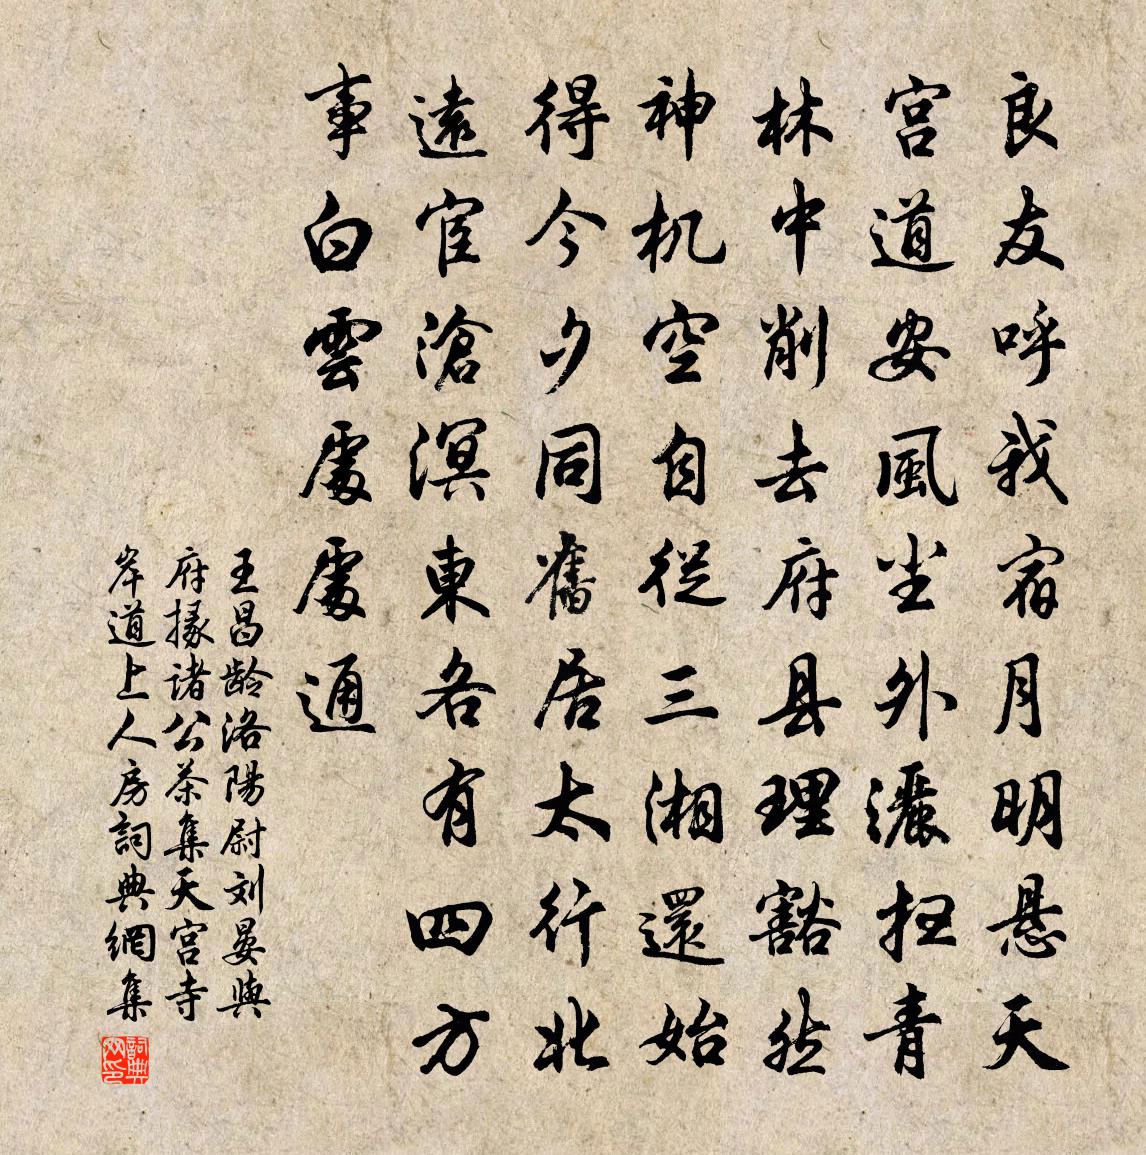 良友呼我宿月明悬天
宫道安風尘外灑扫青
林中削去府县理豁然
神机空自從三湘還始
得今夕同舊居太行北
遠宦滄溟東各有四方
事白雲處處通
王昌龄洛陽尉刘晏與
府掾诸公茶集天宫寺
岸道上人房詞典網集
詞典网印